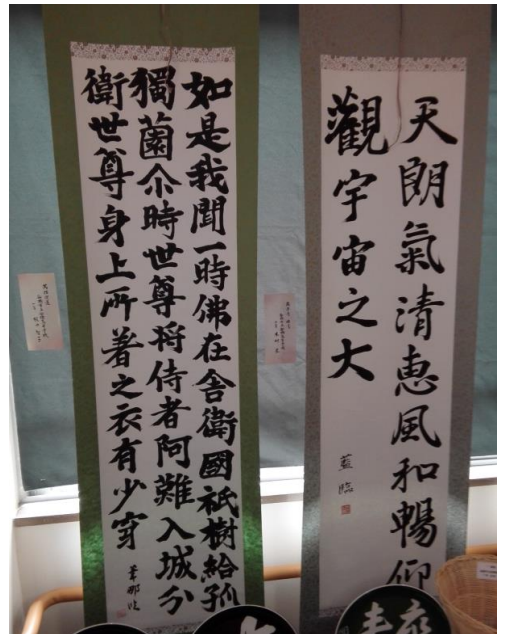 天朗氣清恵風和暢仰
觀宇宙之大
藍臨
如是我聞一時佛在舎衛國祇樹給孤
獨薗尒時世尊将侍者阿難入城分
衛世尊身上所著之衣有少穿